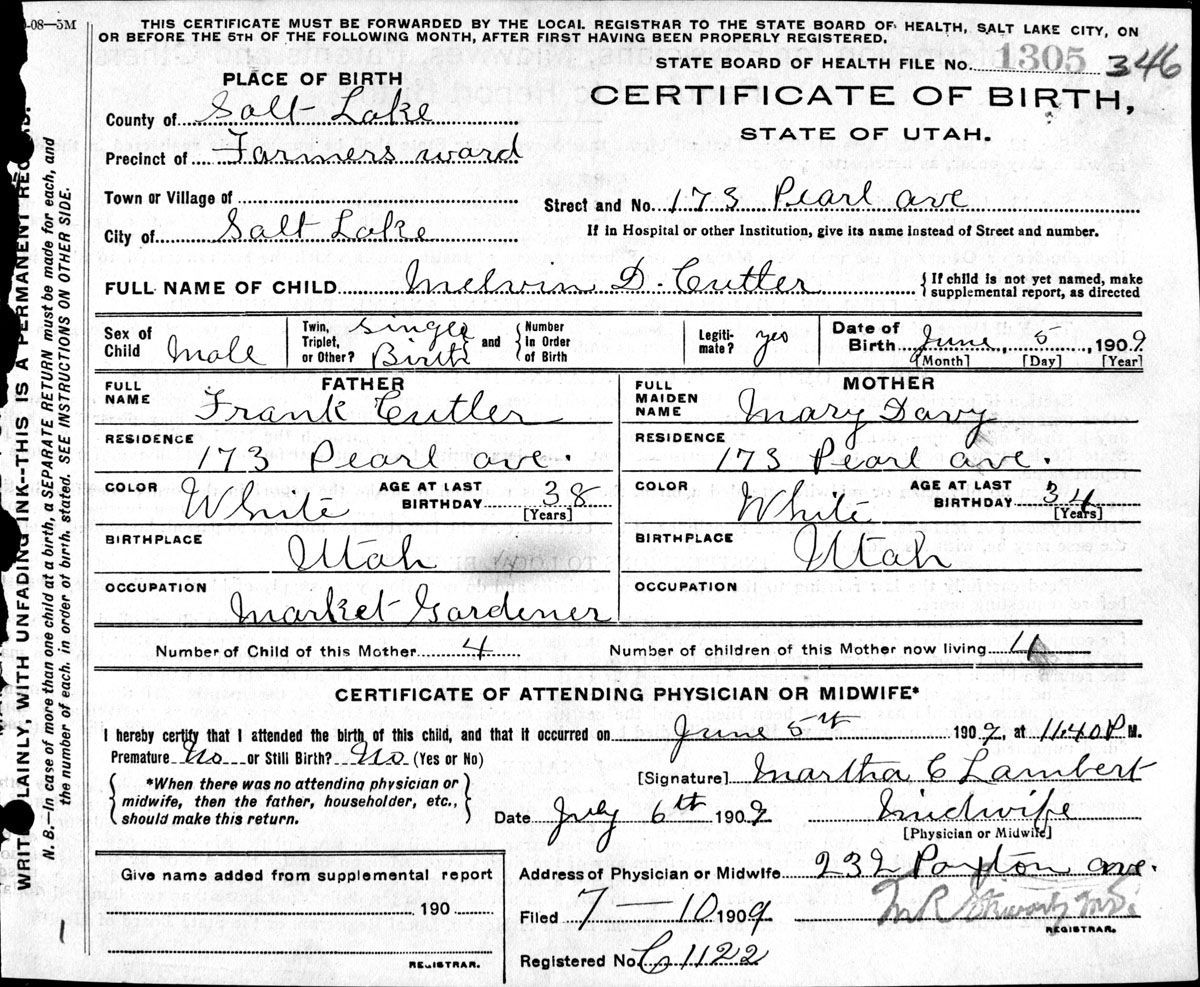 -08—5M
THIS CERTIFICATE MUST BE FORWARDED BY THE LOCAL REGISTRAR TO THE STATE BOARD OF HEALTH, SALT LAKE CITY, ON
OR BEFORE THE 5TH OF THE FOLLOWING MONTH, AFTER FIRST HAVING BEEN PROPERLY REGISTERED.
STATE BOARD OF HEALTH FILE No. 1305 346
PLACE OF BIRTH
CERTIFICATE OF BIRTH,
STATE OF UTAH.
County of Salt Lake
Precinct of Farmers ward
Town or Village of
Street and No. 173 Pearl ave
City of Salt Lake
If in Hospital or other Institution, give its name instead of Street and number.
FULL NAME OF CHILD Melvin D. Cutler
{ If child is not yet named, make
supplemental report, as directed
Sex of Child Male
Twin, Triplet, or Other? Single Birth
and { Number in Order of Birth
Legiti-mate? yes
Date of Birth June, 5, 1909
[Month] [Day] [Year]
FATHER
FULL NAME Frank Cutler
RESIDENCE 173 Pearl ave.
COLOR White
AGE AT LAST BIRTHDAY 38
[Years]
BIRTHPLACE Utah
OCCUPATION Market Gardener
MOTHER
FULL MAIDEN NAME Mary Davy
RESIDENCE 173 Pearl ave.
COLOR White
AGE AT LAST BIRTHDAY 34
[Years]
BIRTHPLACE Utah
OCCUPATION
Number of Child of this Mother 4
Number of children of this Mother now living 4
CERTIFICATE OF ATTENDING PHYSICIAN OR MIDWIFE*
I hereby certify that I attended the birth of this child, and that it occurred on June 5th 1909, at 11.40 P M.
Premature No or Still Birth? No (Yes or No)
[Signature] Martha C Lambert
{ *When there was no attending physician or
midwife, then the father, householder, etc.,
should make this return. }
Date July 6th 1909
Midwife
[Physician or Midwife]
Give name added from supplemental report
190
REGISTRAR.
Address of Physician or Midwife 232 ave.
Filed 7—10 1909
M R Stewart MD.
REGISTRAR.
Registered No. C 1122
WRITE PLAINLY, WITH UNFADING INK--THIS IS A PERMANENT
N. B.—In case of more than one child at a birth, a SEPARATE RETURN must be made for each, and
the number of each, in order of birth, stated. SEE INSTRUCTIONS ON OTHER SIDE.